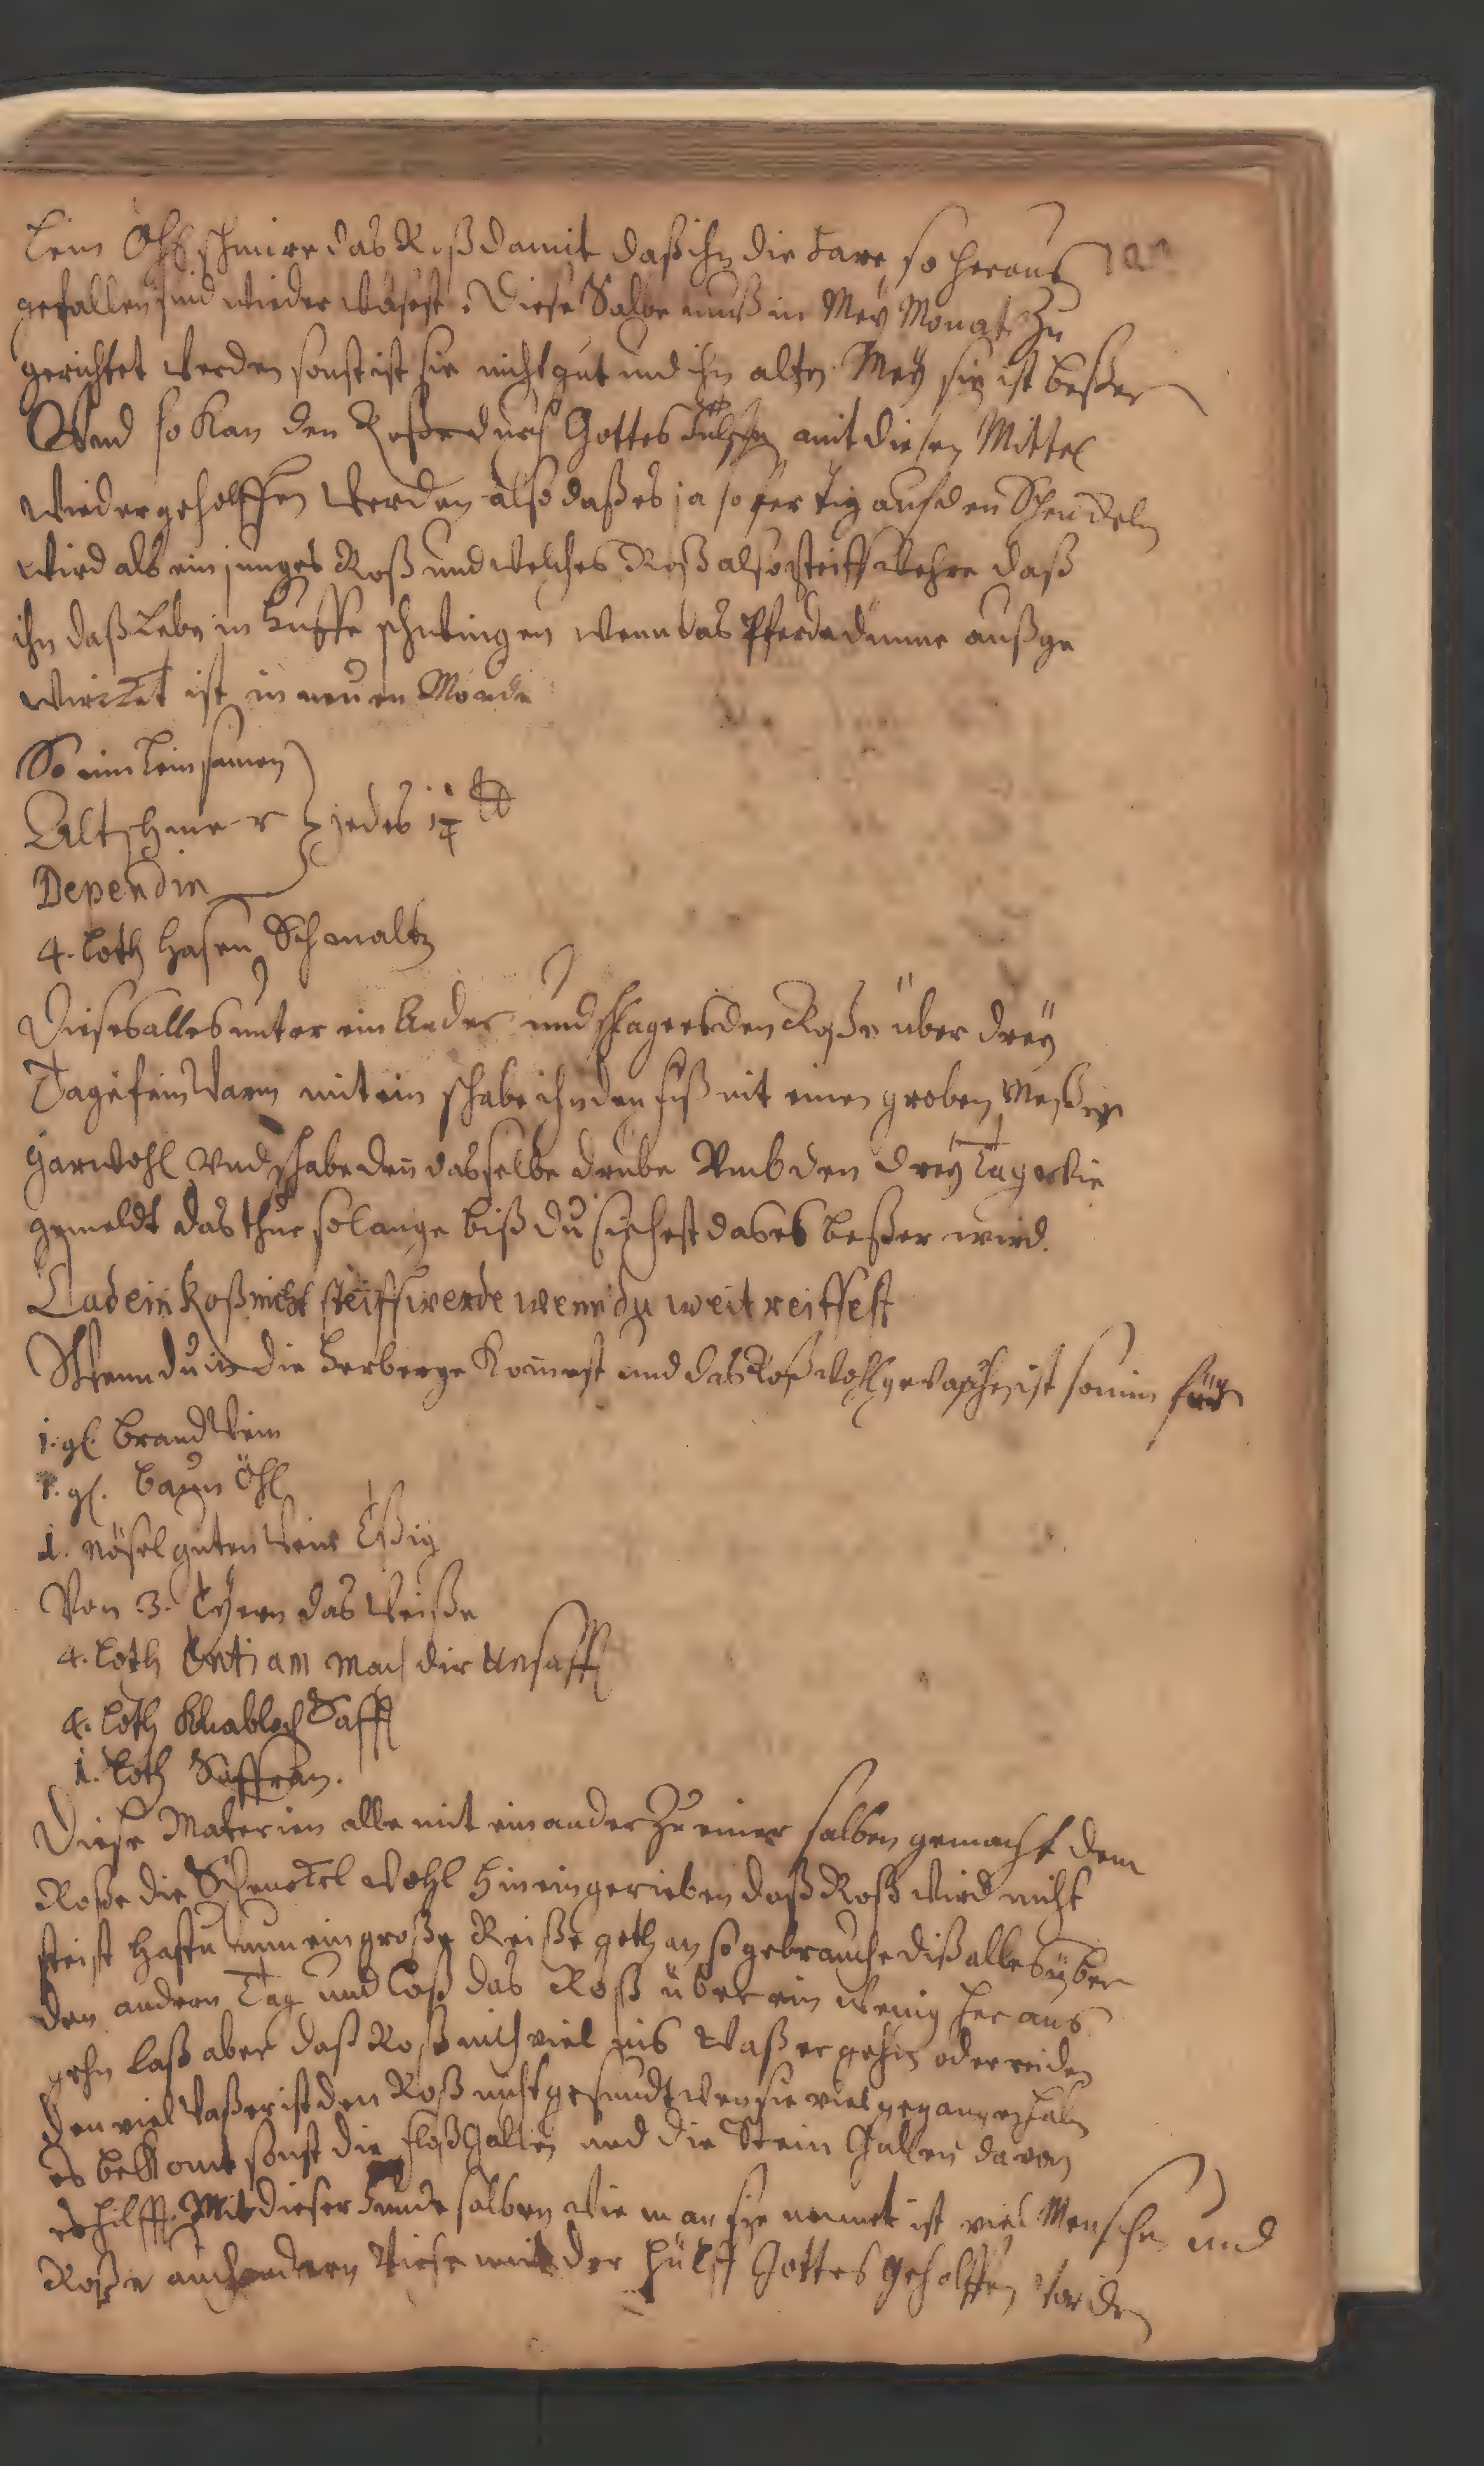 Lein Öhl schmire das Roß damit daß ihn die Hare so heraus
gefallen sind wieder wachsst. Diese Salbe muß in Mey Monat zu
gerichtet werden sonst ist sie nicht gut und ihn alten Mey sie ist beßer
Und so kan den Roße durch Gottes Hülffe mit diesen Mittel
wieder geholffen werden also daß es ja so fertig auf den Schenckeln
wird als ein junges Roß und welches Roß also steiff wehre daß
ihn daß Lebn in Huffe schwingen wenn das Pferde dünne außge
wirckt ist in neuen Monde
So nim Leinsamen
Altschmer jedes 1 ℔
Dependin
4. Loth Hasen Schmaltz
Dieses alles unter ein Ander und schlage es den Roße über drey
Tage fein warm mit ein schabe ihn den fuß mit einen groben Meßer
gar wohl und schabe den dasselbe drübe Umb den drey Tag wie
gemeldt das thue so lange biß du sichest das es beßer wird.
Das ein Roß nicht steiff werde wenn du weit reittest
Wenn du in die Herberge komest und das Roß wohl gewaschen ist so nim
1. gl. Brandwein
1. gl. Baum Öhl
1. Nösel guten Wein Eßig
Von 3. Eyern das Weiße
4. Loth Entian mach dir
4. Loth Knabloch Safft
1. Loth Saffran.
Diese Materien alle mit einander zu einer salben gemacht dem
Roße die Schenckel wohl hinein gerieben daß Roß wird nicht
steist hastu nun ein große Reiße gethan so gebrauche diß alles über
den andern Tag und laß das Roß über ein wenig heraus
gehn laß aber daß Roß nich viel ins Waßer gehn oder reiden
den viel Waßer ist den Roß nicht gesundt wen sie viel gegangen habn
es bekomt sonst die Floßgallen und die Stein Gallen davon
es hilfft. Mit dieser Hunde salben wie man sie nennet ist viel Menschen und
Roße auch andern Viehe mit der Hülff Gottes geholffen worden